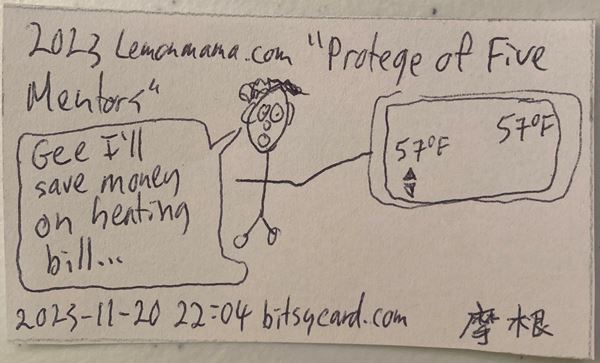 2023 Lemonmama.com "Protege of Five
Mentors"
Gee I'll
save money
on heating
bill...
57°F
57°F
2023-11-20 22:04 bitsycard.com
摩根